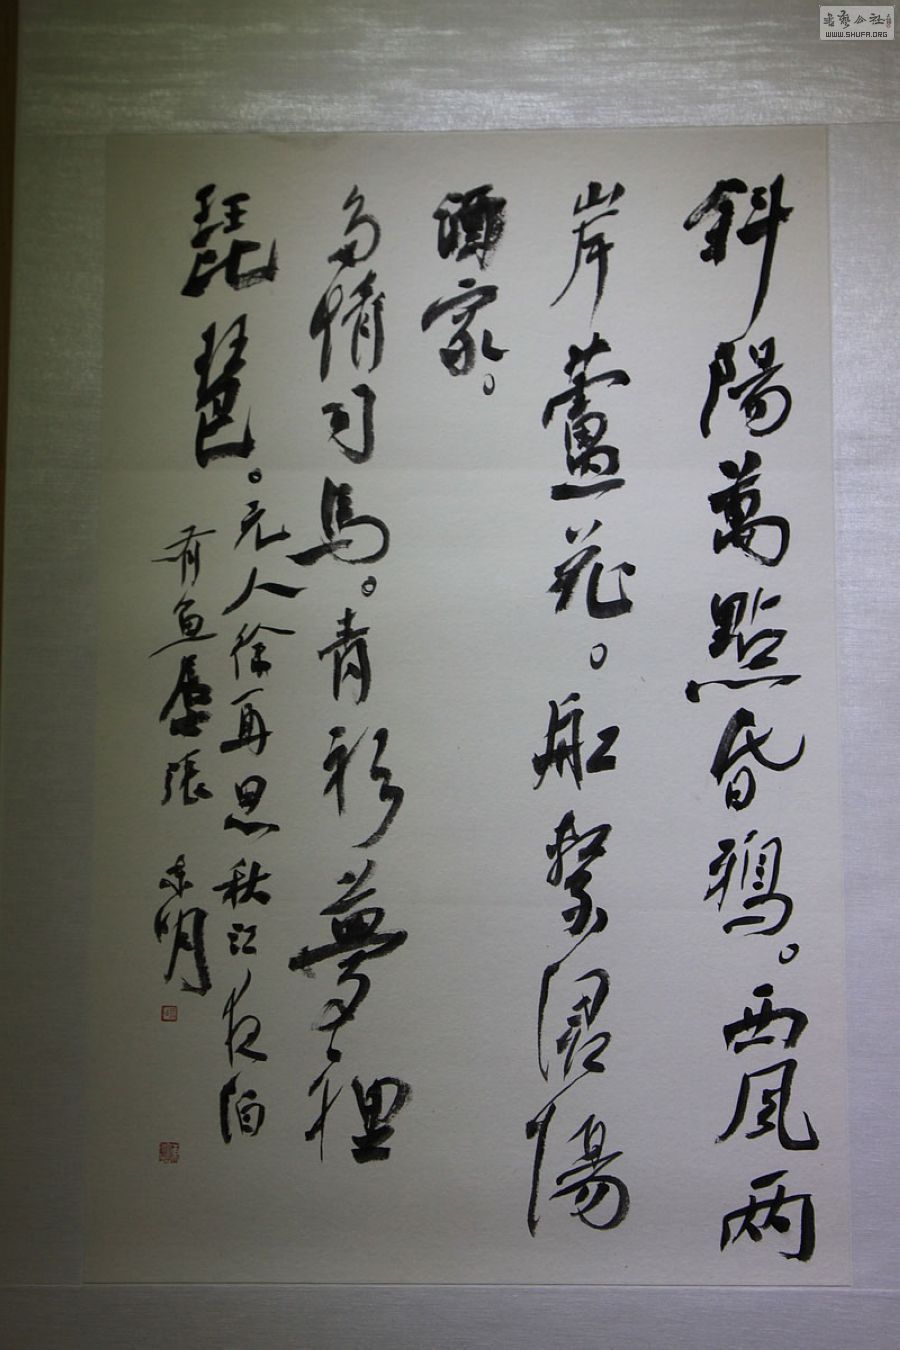 斜陽萬點昏鴉。西風两
岸蘆花。船繫潯陽
酒家。
多情司馬。青衫夢裡
琵琶。元人徐再思秋江夜泊
有魚屋張東明
WWW.SHUFA.ORG